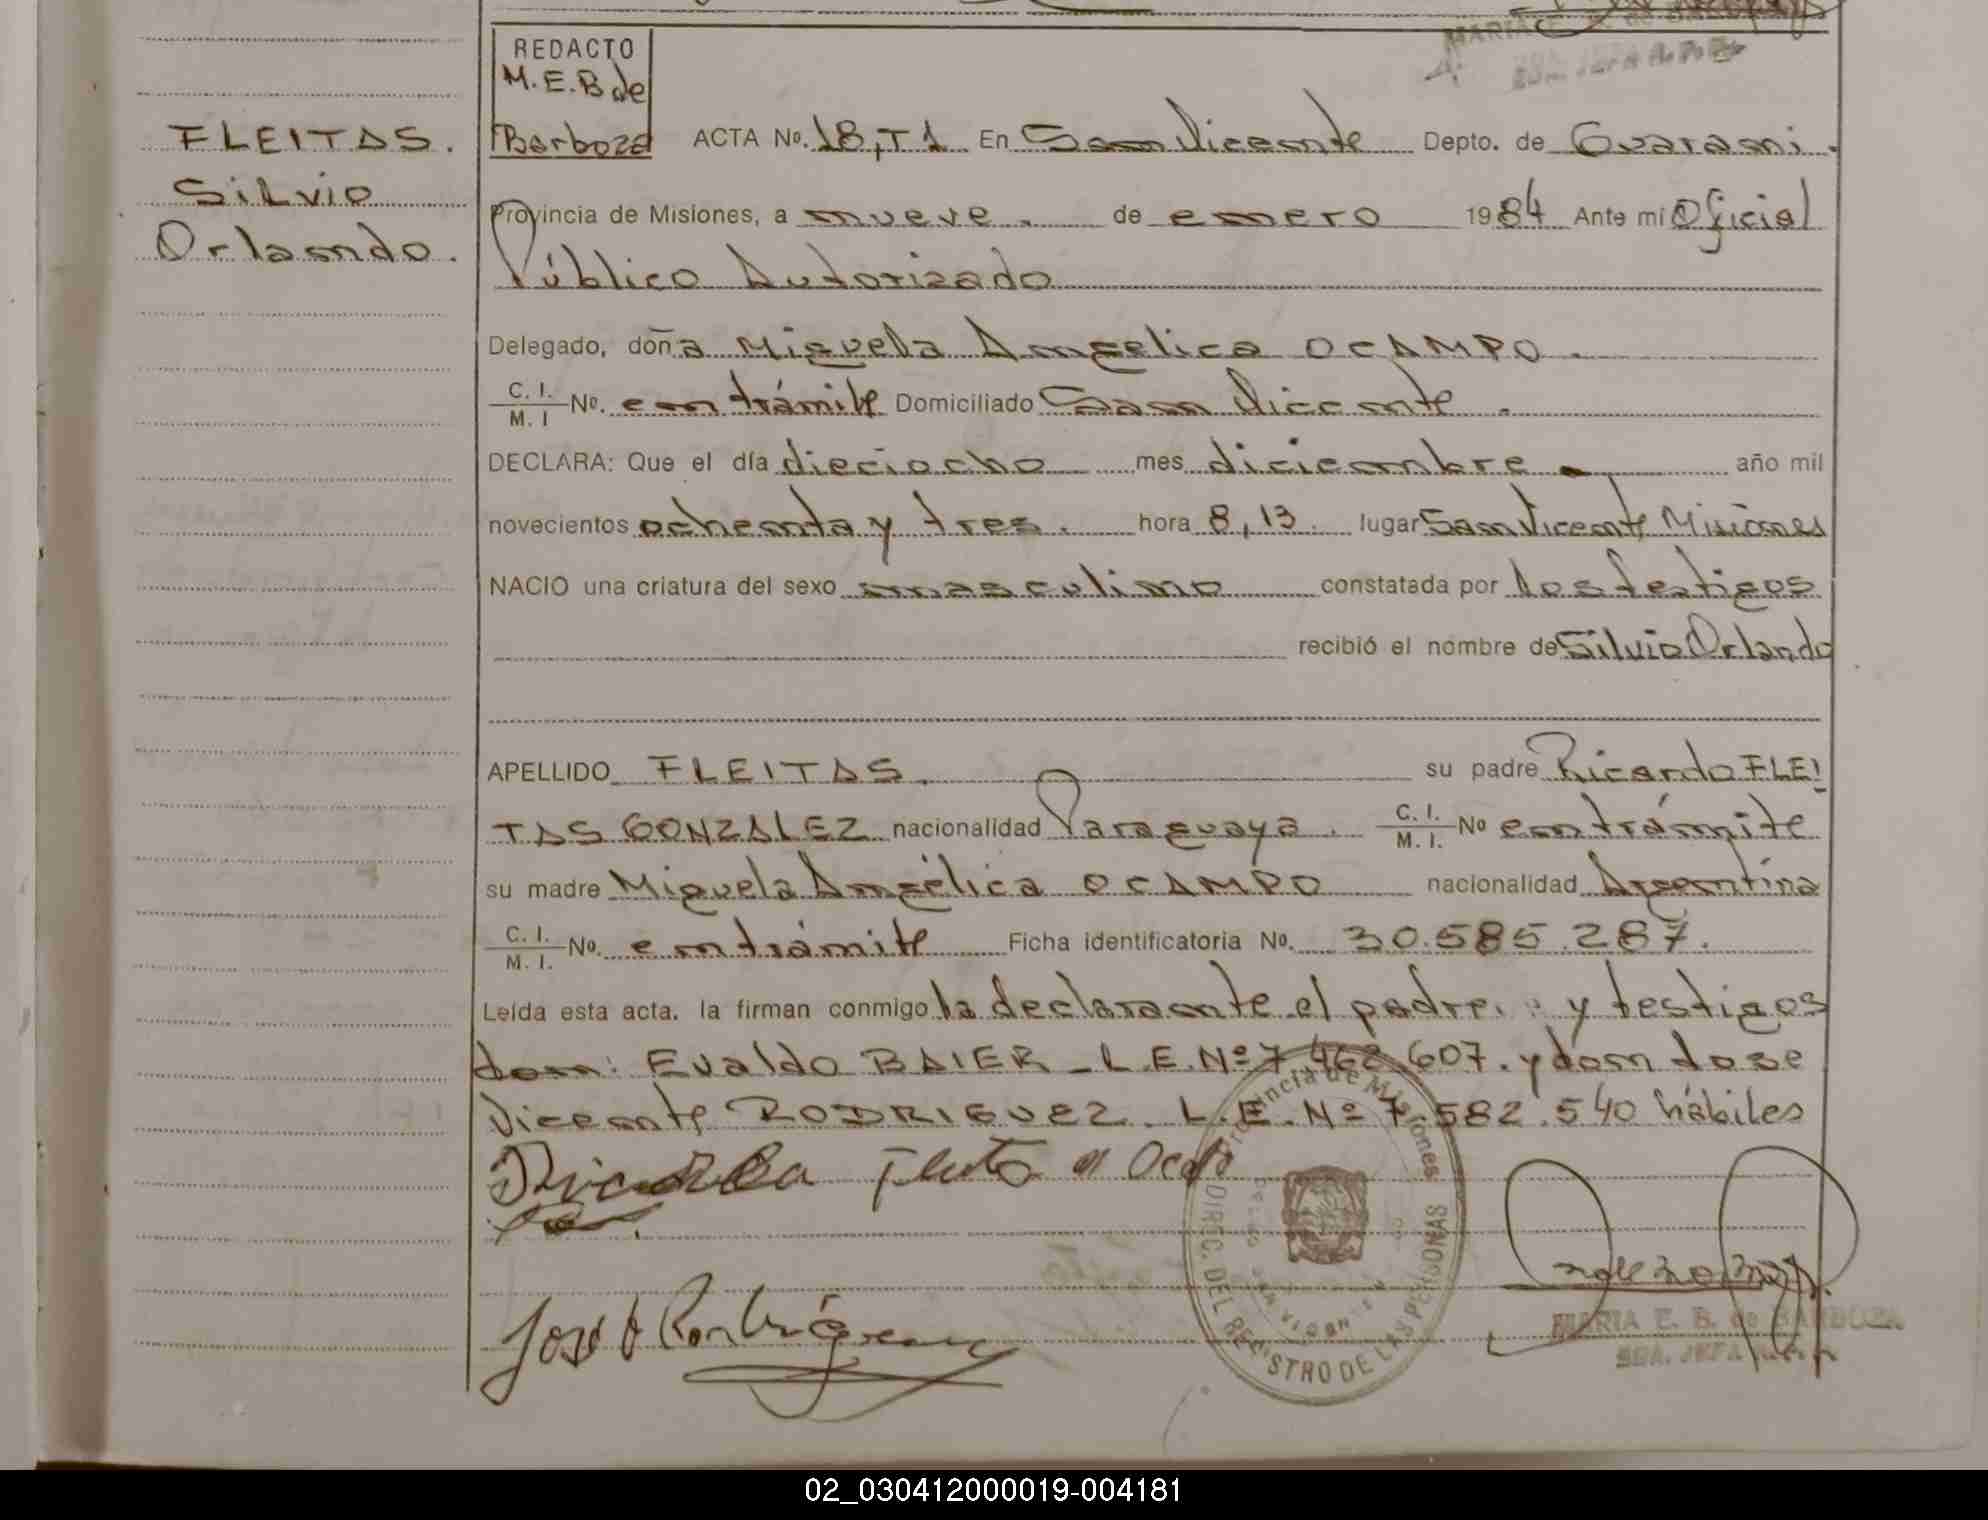 FLEITAS.
Silvio
Orlando.
REDACTO
M.E.B de
Barboza
ACTA No. 18, T1 En San Vicente Depto. de Guarani.
Provincia de Misiones, a nueve. de enero 1984 Ante mi Oficial
Público Autorizado
Delegado, doña Miguela Angelica OCAMPO.
C. I. / M. I No. en trámite Domiciliado San Vicente.
DECLARA: Que el día dieciocho mes diciembre año mil
novecientos ochenta y tres. hora 8,13. lugar San Vicente Misiones
NACIO una criatura del sexo masculino constatada por los testigos
recibió el nombre de Silvio Orlando
APELLIDO FLEITAS. su padre Ricardo FLEI
TAS GONZALEZ nacionalidad Paraguaya. C. I. / M. I. No en trámite
su madre Miguela Angélica OCAMPO nacionalidad Argentina
C. I. / M. I. No. en trámite Ficha identificatoria No. 30.585.287.
Leída esta acta. la firman conmigo la declarante el padre, y testigos
don: Evaldo BAIER - L.E.Nº 7.462.607. y don Jose
Vicente RODRIGUEZ. L.E.Nº 7.582.540 hábiles
Provincia de Misiones
DIREC. DEL REGISTRO DE LAS PERSONAS
MARIA E. B. de BARBOZA
02_030412000019-004181